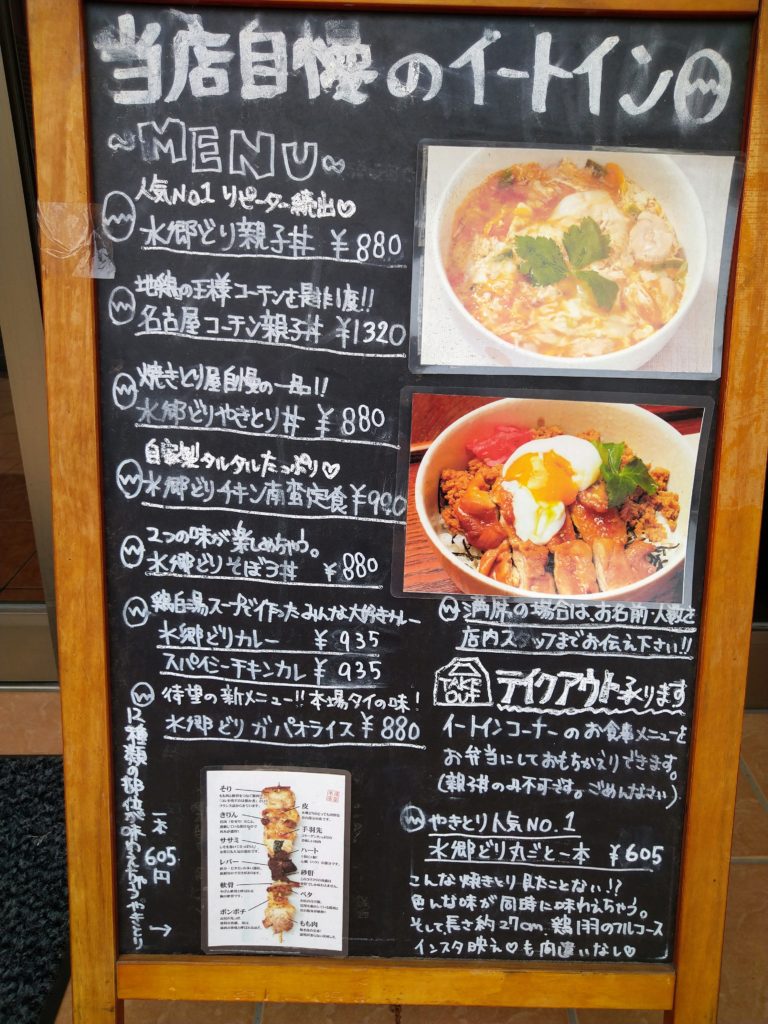 当店自慢のイートイン
~MENU~
人気No.1 リピーター続出♡
水郷どり親子丼 ¥880
地鶏の王様コーチンを是非1度!!
名古屋コーチン親子丼 ¥1320
焼きとり屋自慢の一品!!
水郷どりやきとり丼 ¥880
自家製タルタルたっぷり♡
水郷どりチキン南蛮定食 ¥990
2つの味が楽しめちゃう。
水郷どりそぼろ丼 ¥880
鶏白湯スープで作ったみんな大好きカレー
水郷どりカレー ¥935
スパイシーチキンカレー ¥935
待望の新メニュー!!本場タイの味!
水郷どりガパオライス ¥880
12種類の部位が味わえちゃうやきとり→
一本605円
そり
きりん
ササミ
レバー
軟骨
ボンボチ
皮
手羽先
ハート
砂肝
ペタ
もも肉
満席の場合は、お名前・人数を
店内スタッフまでお伝え下さい!!
TAKE OUT
テイクアウト承ります
イートインコーナーのお食事メニューを
お弁当にしておもちかえりできます。
(親子丼のみ不可です。ごめんなさい)
やきとり人気NO.1
水郷どり丸ごと一本 ¥605
こんな焼きとり見たことない!?
色んな味が同時に味わえちゃう。
そして長さ約27cm、鶏1羽のフルコース
インスタ映え♡も間違いなし♡